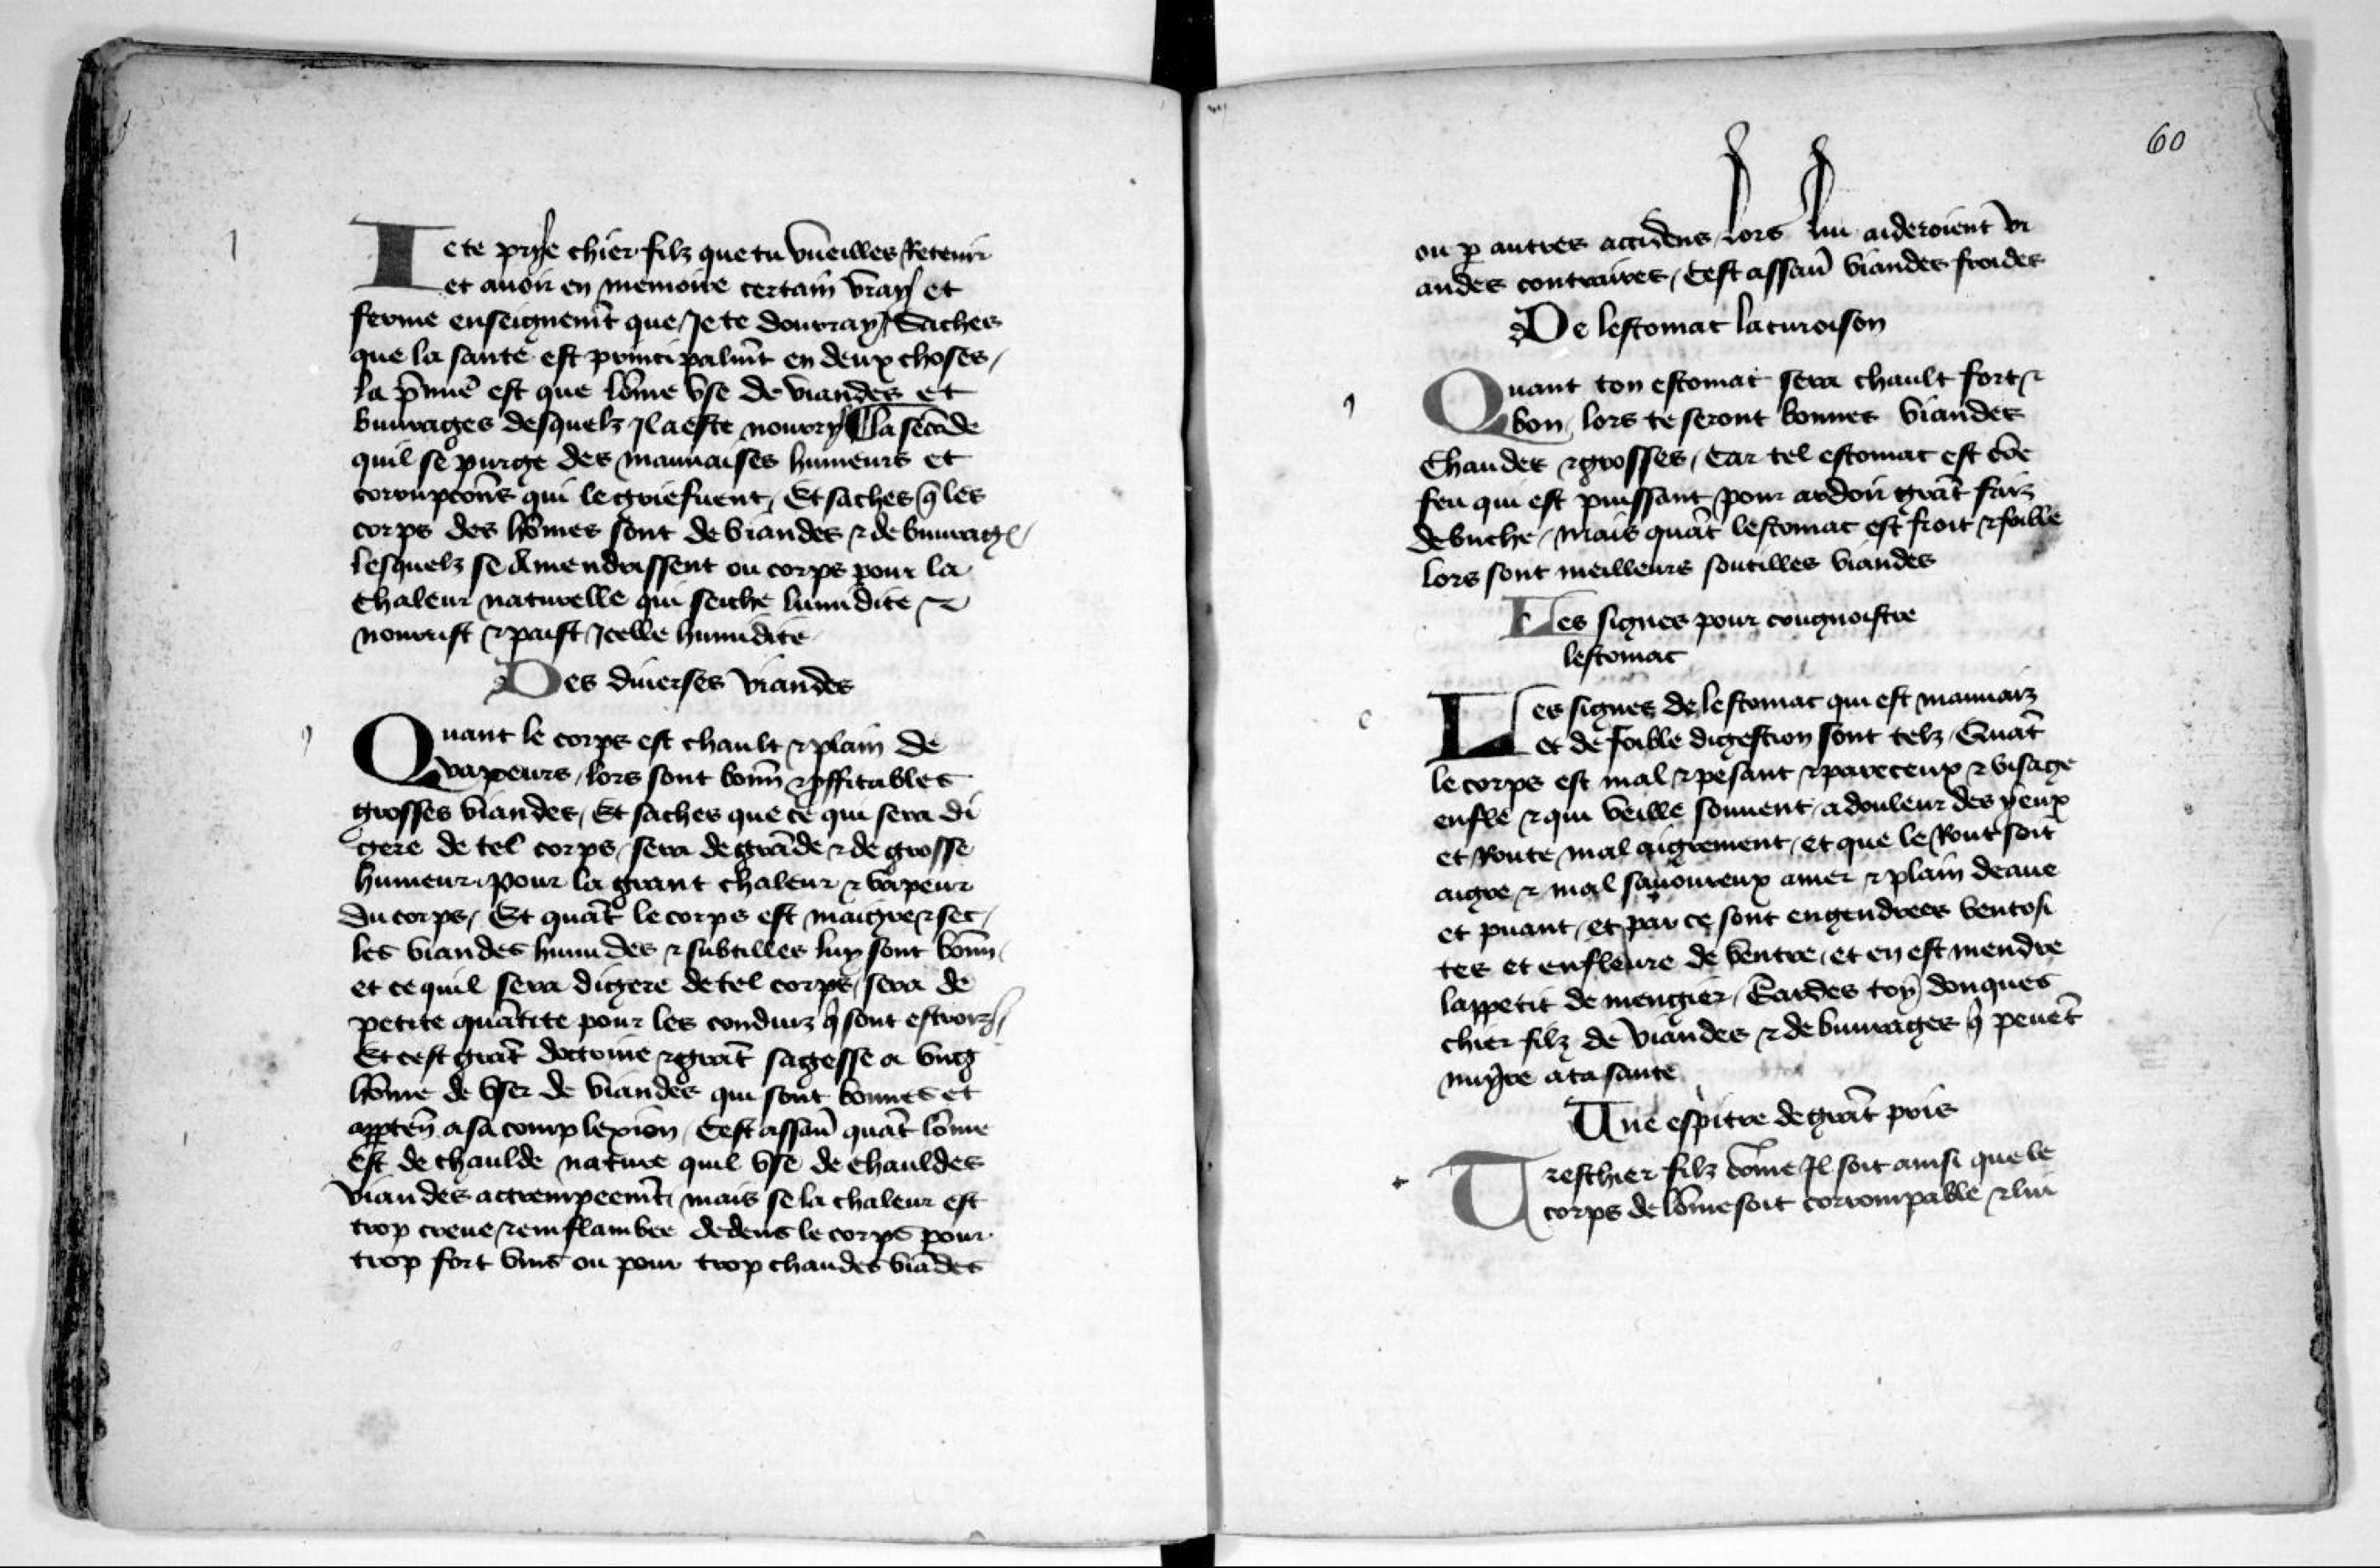 Ie te prye chier filz que tu vueilles Retenir
et auoir en memoire certain vray et
ferme enseignem̃t que Je te donrray Saches
que la sante est principalm̃t en deux choses /
la p̃miẽ est que lõme vse de viandes et
buurages desquelz Jl a este nourry La secõde
quil se purge des mauuaises humeurs et
corrupcõns qui le griefuent / Et saches q̃ les
corps des hõmes sont de viandes ⁊ de buurages /
lesquelz se Amendrissent ou corps pour la
Chaleur naturelle qui seiche lumidite ⁊
nourrist ⁊ paist Jcelle humidite
Des diuerses viandes
Quant le corps est chault ⁊ plain de
vapeurs / lors sont bonñ ⁊ ꝓffitables
grosses viandes / Et saches que ce qui sera di
gere de tel corps / sera de grãde ⁊ de grosse
humeur / pour la grant chaleur ⁊ vapeur
du corps / Et quãt le corps est maigre ⁊ sec /
les viandes humides ⁊ subtilles luy sont bonñ /
et ce quil sera digere de tel corps / sera de
petite quãtite pour les conduiz q̃ sont estroiz /
Et cest grãt doctrine ⁊ grãt sagesse a vng
hõme de vser de viandes qui sont bonnes et
apꝑteñ a sa complexion / Cest assau̴ quãt lõme
est de chaulde nature quil vse de chauldes
viandes actrempeem̃t / mais se la chaleur est
trop creue ⁊ emflambee dedens le corps pour
trop fort vins ou pour trop chaudes viãdes
60
ou ꝑ autres accidens / lors lui aideroient vi
andes contraires / Cest assau̴ viandes froides
De lestomac la curoison
Quant ton estomac sera chault fort ⁊
bon / lors te seront bonnes viandes
Chaudes ⁊ grosses / Car tel estomac est cõe
feu qui est puissant pour ardoir grãt faiz
de buche / Mais quãt lestomac est froit ⁊ foible
lors sont meilleurs soutilles viandes
Les signes pour congnoistre
lestomac
Les signes de lestomac qui est mauuaiz
et de foible digestion sont telz / Quãt
le corps est mal ⁊ pesant ⁊ pareceux ⁊ visage
enfle ⁊ qui veille souuent / a douleur des yeux
et Route mal aigrement / et que le Rout soit
aigre ⁊ mal sauoureux amer ⁊ plain deaue
et puant / et par ce sont engendrees ventosi
tes et enfleure de ventre / et en est mendre
lappetit de mengier / Gardes toy donques
chier filz de viandes ⁊ de buurages q̃ peuẽt
nuyre a ta sante
Vne espitre de grãt pris
Treschier filz cõme Jl soit ainsi que le
corps de lõme soit corrompable ⁊ lui